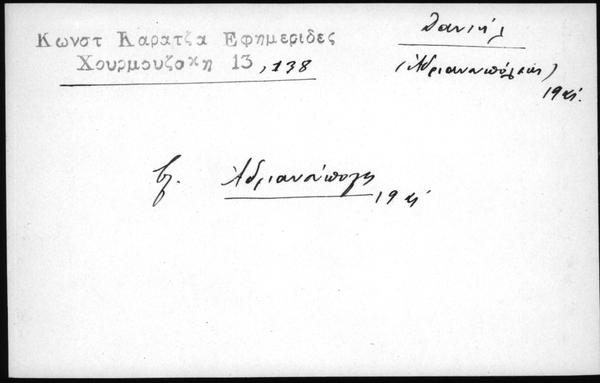 Κωνστ Καρατζα Εφημεριδες
Χουρμουζακη 13, 138
Δανιήλ
(Ἀδριανουπόλεως)
βλ. Ἀδριανούπολη